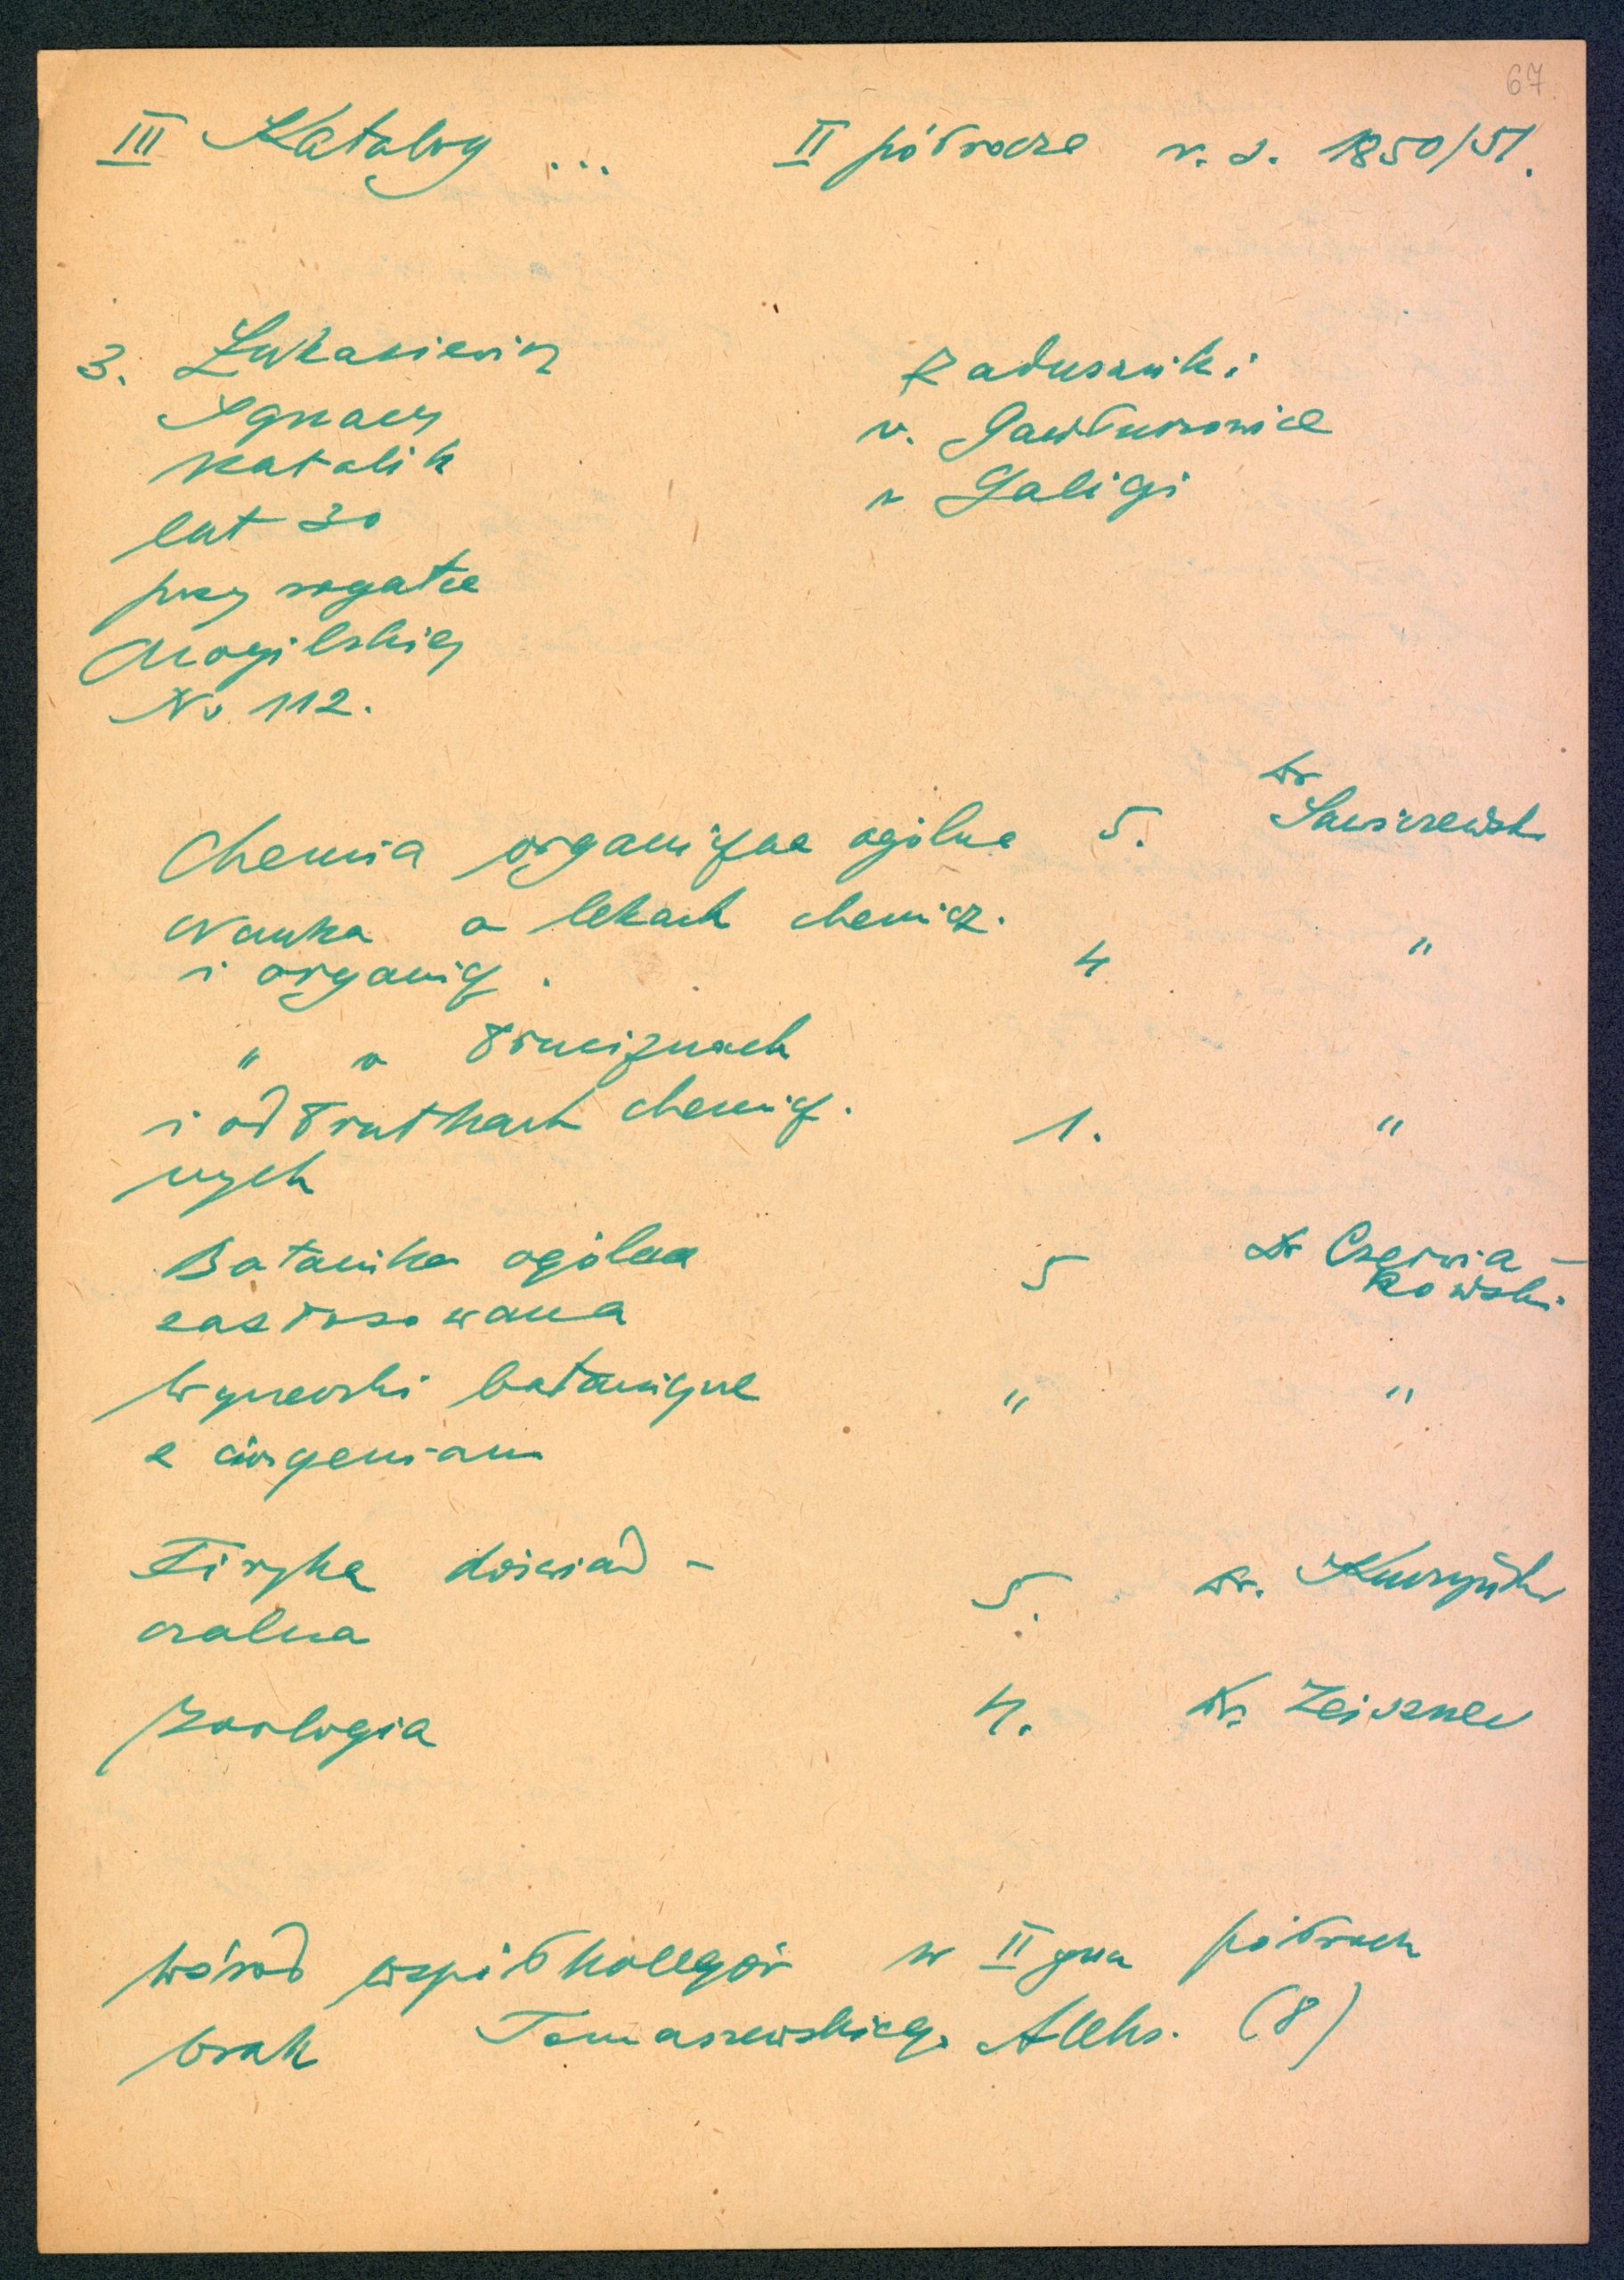 67
III Katalog ... II półrocze r. s. 1850/51.
3. Łukasiewicz Zaduszniki
Ignacy w. Gawłuszowice
katolik w Galicji
lat 30
przy rogatce
Mogilskiej
No 112.
Dr
Chemia organiczna ogólna 5. Sawiczewski
Nauka o lekach chemicz.
i organicz. 4 "
" o truciznach
i odtrutkach chemicz. 1. "
nych
Botanika ogólna 5 Dr Czerwia-
zastosowana kowski
Wycieczki botaniczne " "
z ćwiczeniami
Fizyka doświad- 5. Dr. Kuczyński
czalna
Zoologia 4. Dr. Zeiszner
Wśród współkolegów w II gim półroczu
brak Tomaszewskiego Aleks. (8)